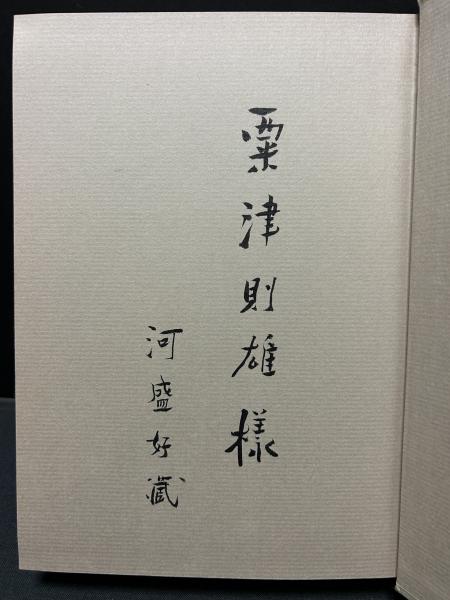 粟津則雄様
河盛好蔵